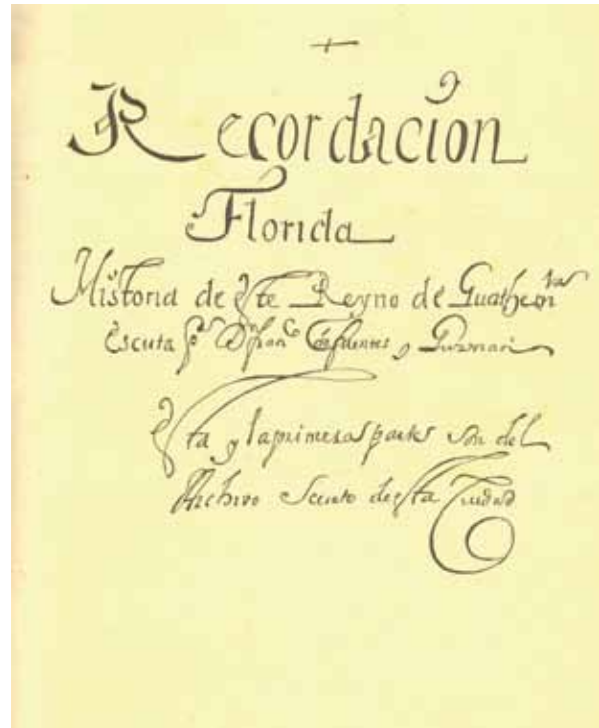 Recordacion
Florida
Historia de este Reyno de Guathem.la
Escrita p.r D.n Fran.co de Fuentes y Guzman
esta y la primera partes son del
Archivo Secreto desta Ciudad